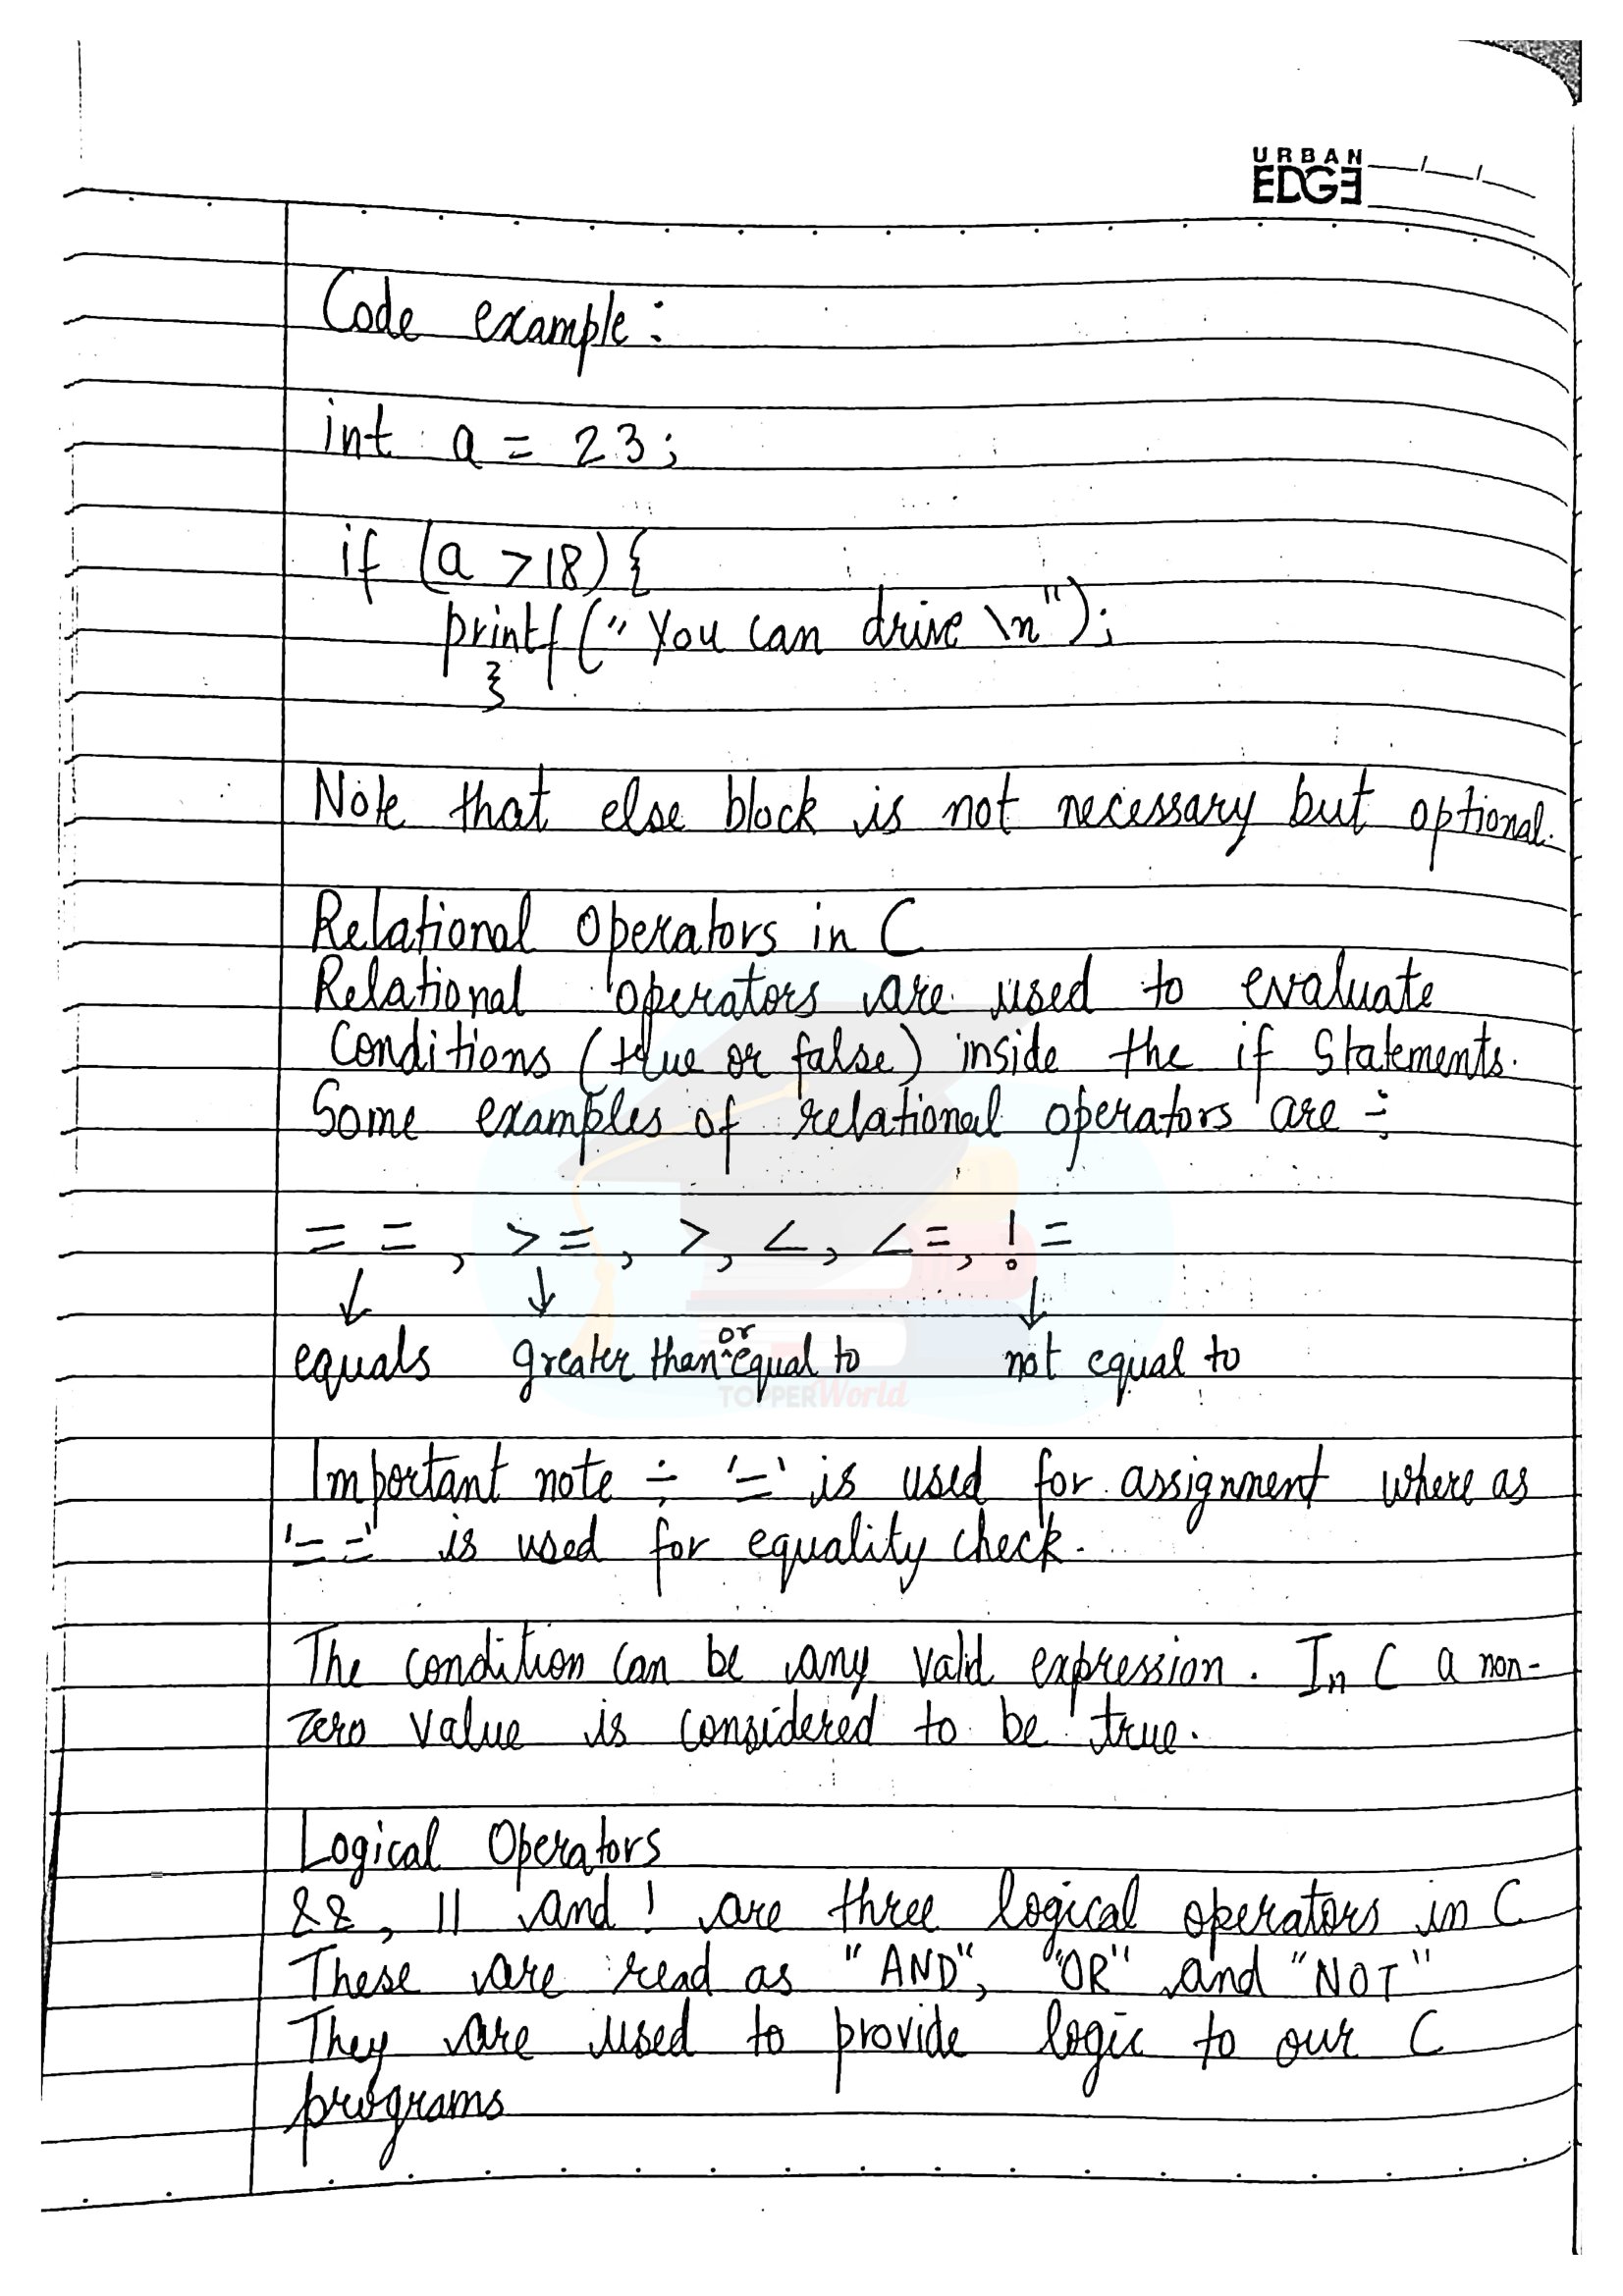 URBAN
EDGE
Code example:
int a = 23;
if (a > 18) {
printf (" You can drive \n");
}
Note that else block is not necessary but optional.
Relational Operators in C
Relational operators are used to evaluate
Conditions (true or false) inside the if Statements.
Some examples of relational operators are ÷
= =, > =, >, <, < =, ! =
↓ ↓ ↓
equals greater than or equal to not equal to
TOPPERWorld
Important note ÷ '=' is used for assignment where as
'= =' is used for equality check.
The condition can be any valid expression. In C a non-
zero value is considered to be true.
Logical Operators
&&, || and ! are three logical operators in C
These are read as "AND", "OR" and "NOT"
They are used to provide logic to our C
programs